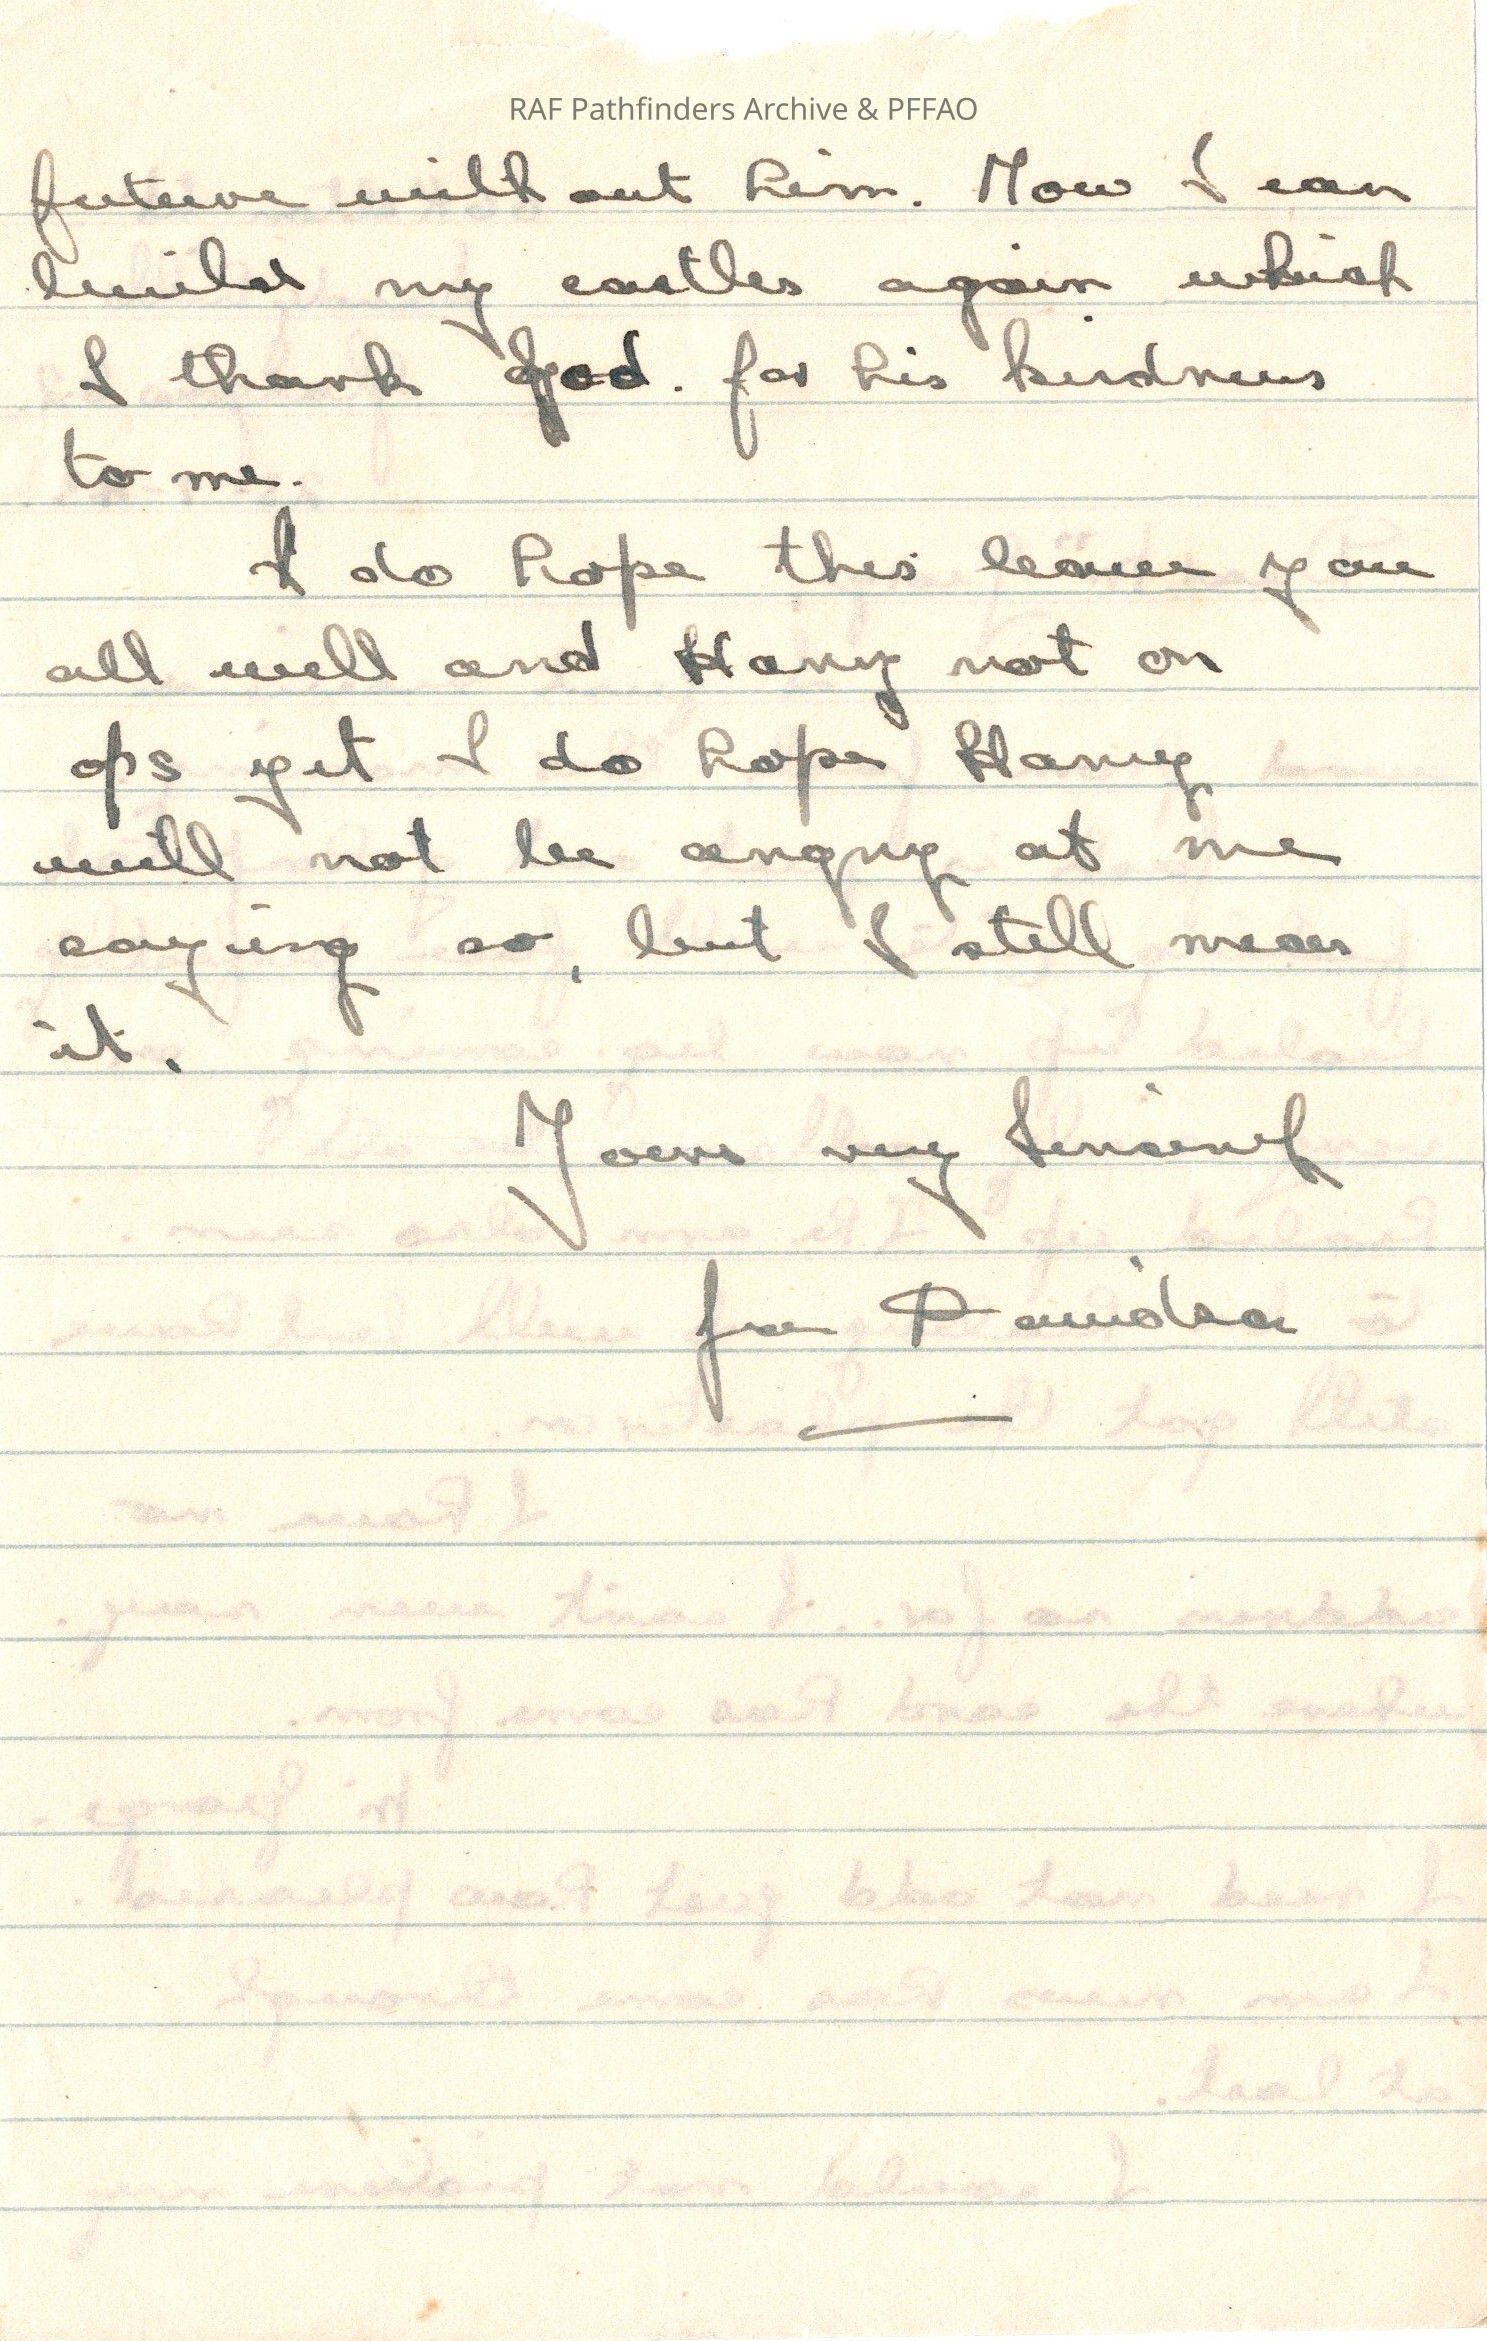 RAF Pathfinders Archive & PFFAO
future without him. Now I can
build my castles again which
I thank God. for his kindness
to me.
I do hope this leave you
all well and Harry not on
ops yet I do hope Harry
will not be angry at me
saying so, but I still mean
it.
Yours very